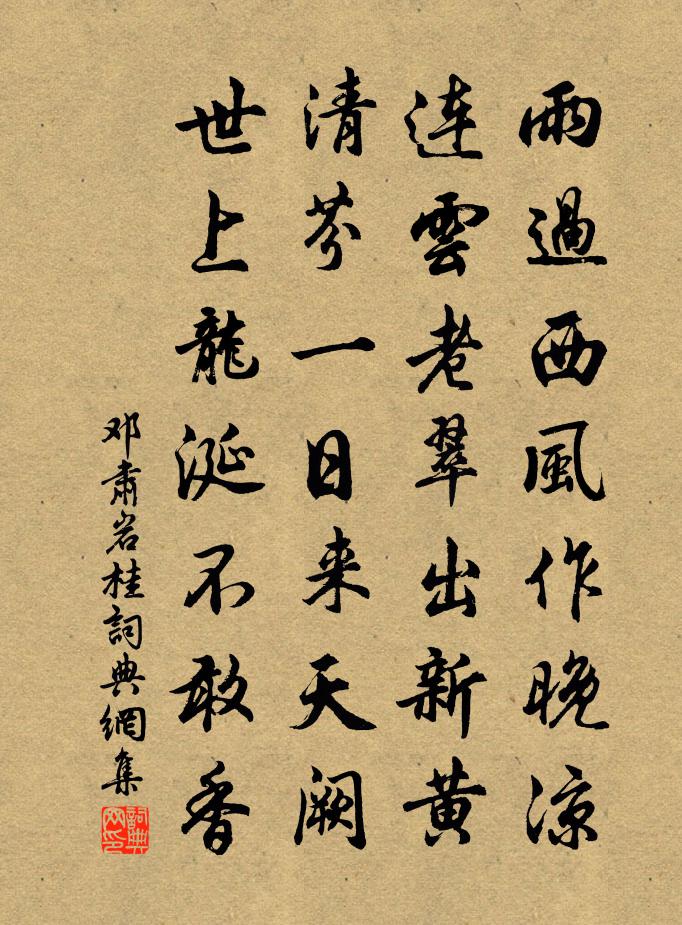 雨過西風作晚涼
連雲老翠出新黃
清芬一日来天闕
世上龍涎不敢香
邓肅岩桂詞典網集
詞典网印